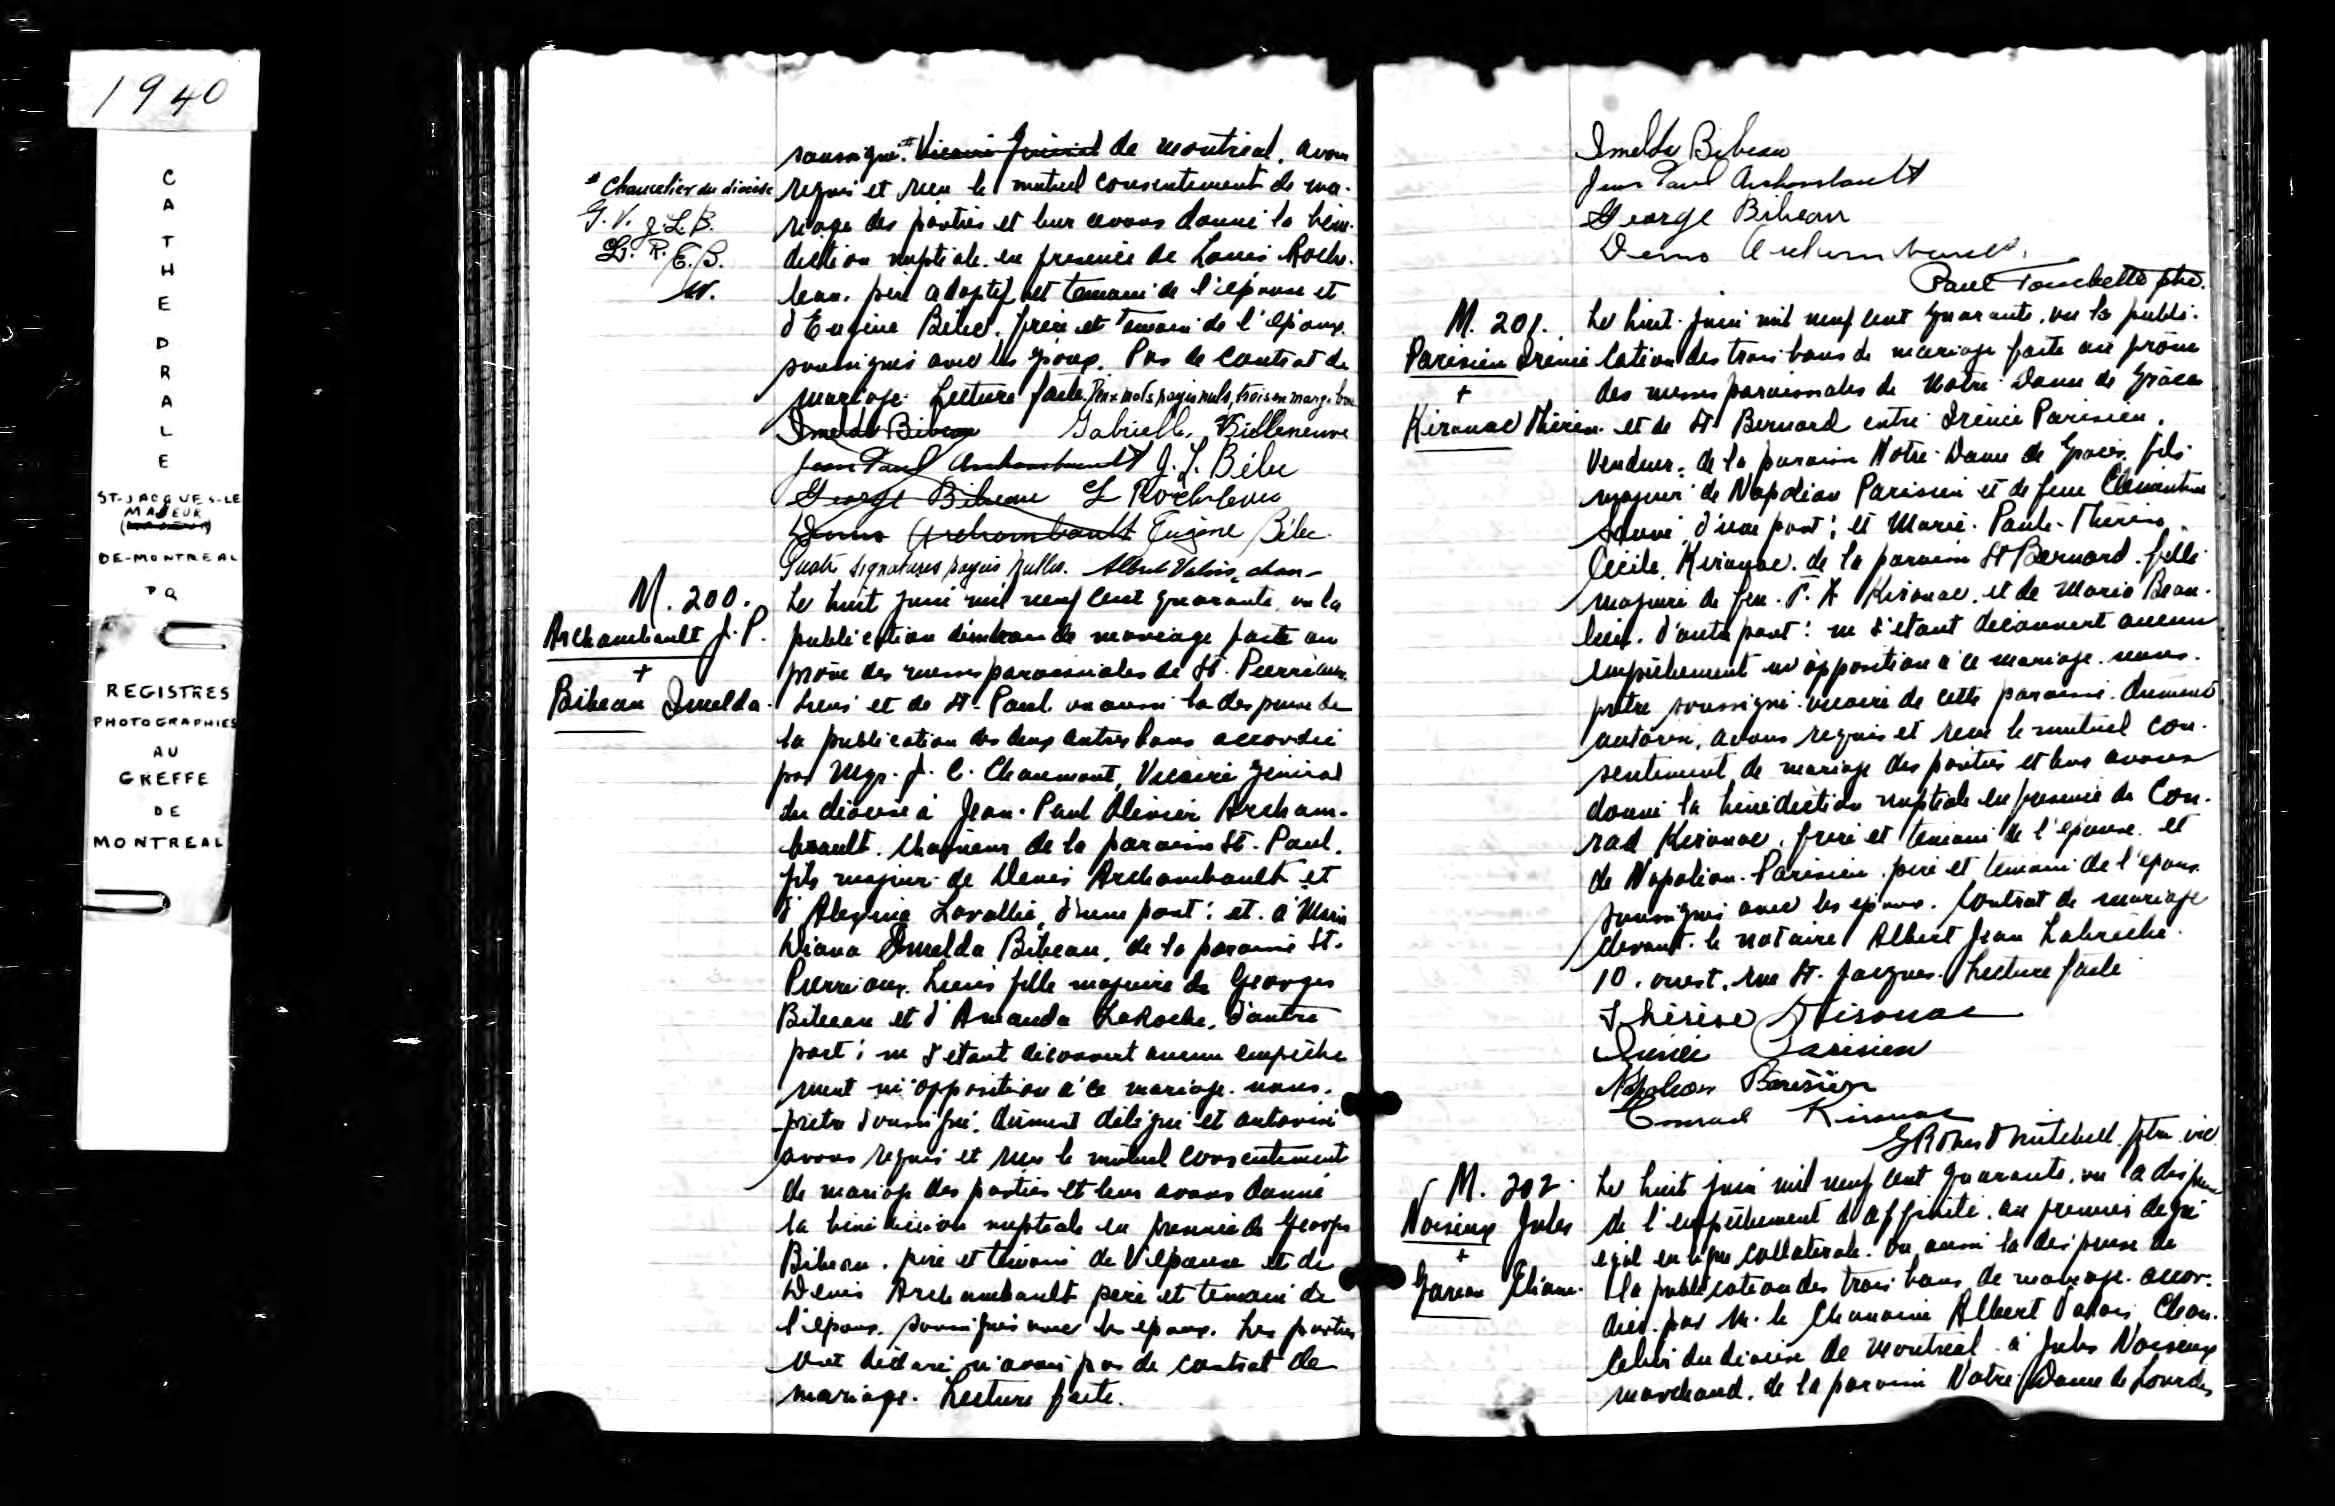 1940
CATHEDRALE
ST-JACQUES-LE
MAJEUR
DE-MONTREAL
P Q
REGISTRES
PHOTOGRAPHIES
AU
GREFFE
DE
MONTREAL
soussigné * Vicaire Général de Montréal, avons
* Chancelier du diocèse
G. V. J. L. B.
L. R. E. B.
requis et reçu le mutuel consentement de ma-
riage des parties et leur avons donné la béné-
diction nuptiale en présence de Louis Roche-
leau, père adoptif et témoin de l'épouse et
d'Eugène Bélec, frère et témoin de l'époux
soussignés avec les époux. Pas de contrat de
mariage. Lecture faite. Deux mots rayés nuls, trois en marge bons
Imelda Bibeau Gabrielle Villeneuve
Jean Paul Archambault J. L. Bélec
George Bibeau L Rocheleau
Denis Archambault Eugène Bélec
Quatre signatures rayées nulles. Albert Valois, chan-
M. 200.
Archambault J. P.
+
Bibeau Imelda.
Le huit juin mil neuf cent quarante, vu la
publication d'un ban de mariage faite au
prône des messes paroissiales de St. Pierre aux
Liens et de St-Paul vu aussi la dispense de
la publication des deux autres bans accordée
par Mgr. J. C. Chaumont, Vicaire Général
du diocèse à Jean-Paul Olivier Archam-
bault, de la paroisse St-Paul,
fils majeur de Denis Archambault et
d' Lavallée, d'une part; et à Marie
Diana Imelda Bibeau, de la paroisse St-
Pierre aux Liens fille majeure de Georges
Bibeau et d'Amanda LaRoche, d'autre
part; ne s'étant découvert aucun empêche
ment ni opposition à ce mariage, nous,
prêtre soussigné, dûment délégué et autorisé
avons requis et reçu le mutuel consentement
de mariage des parties et leur avons donné
la bénédiction nuptiale en présence de Georges
Bibeau, père et témoin de l'épouse et de
Denis Archambault père et témoin de
l'époux, soussignés avec les époux. Les parties
ont déclaré n'avoir pas de contrat de
mariage. Lecture faite.
Imelda Bibeau
Jean Paul Archambault
George Bibeau
Denis Archambault.
Paul Touchette ptre.
M. 201.
Parisien Irénée
+
Kirouac Thérèse
Le huit juin mil neuf cent quarante, vu la publi-
cation des trois bans de mariage faite au prône
des messes paroissiales de Notre-Dame de Grâces
et de St Bernard entre Irénée Parisien,
vendeur, de la paroisse Notre-Dame de Grâces, fils
majeur de Napoléon Parisien et de feue Clémentine
Sauvé, d'une part; et Marie-Paule-Thérèse
Cécile Kirouac, de la paroisse St Bernard, fille
majeure de feu Kirouac, et de Maria Beau-
lieu, d'autre part; ne s'étant découvert aucun
empêchement ni opposition à ce mariage, nous,
prêtre soussigné, vicaire de cette paroisse, dûment
autorisé, avons requis et reçu le mutuel con-
sentement de mariage des parties et leur avons
donné la bénédiction nuptiale en présence de Con-
rad Kirouac, frère et témoin de l'épouse et
de Napoléon Parisien, père et témoin de l'époux
soussignés avec les époux. Contrat de mariage
devant le notaire Albert Jean Labrèche
10, ouest, rue St-Jacques. Lecture faite
Thérèse Kirouac
Irénée Parisien
Napoléon Parisien
Conrad Kirouac
G Robert Mitchell ptre vic
M. 202.
Noiseux Jules
+
Gareau Eliane.
Le huit juin mil neuf cent quarante, vu la dispense
de l'empêchement d'affinité au premier degré
égal en ligne collatérale, vu aussi la dispense de
la publication des trois bans de mariage accor-
dée par M. le Chanoine Albert Valois, Chan-
celier du diocèse de Montréal à Jules Noiseux
marchand, de la paroisse Notre-Dame de Lourdes